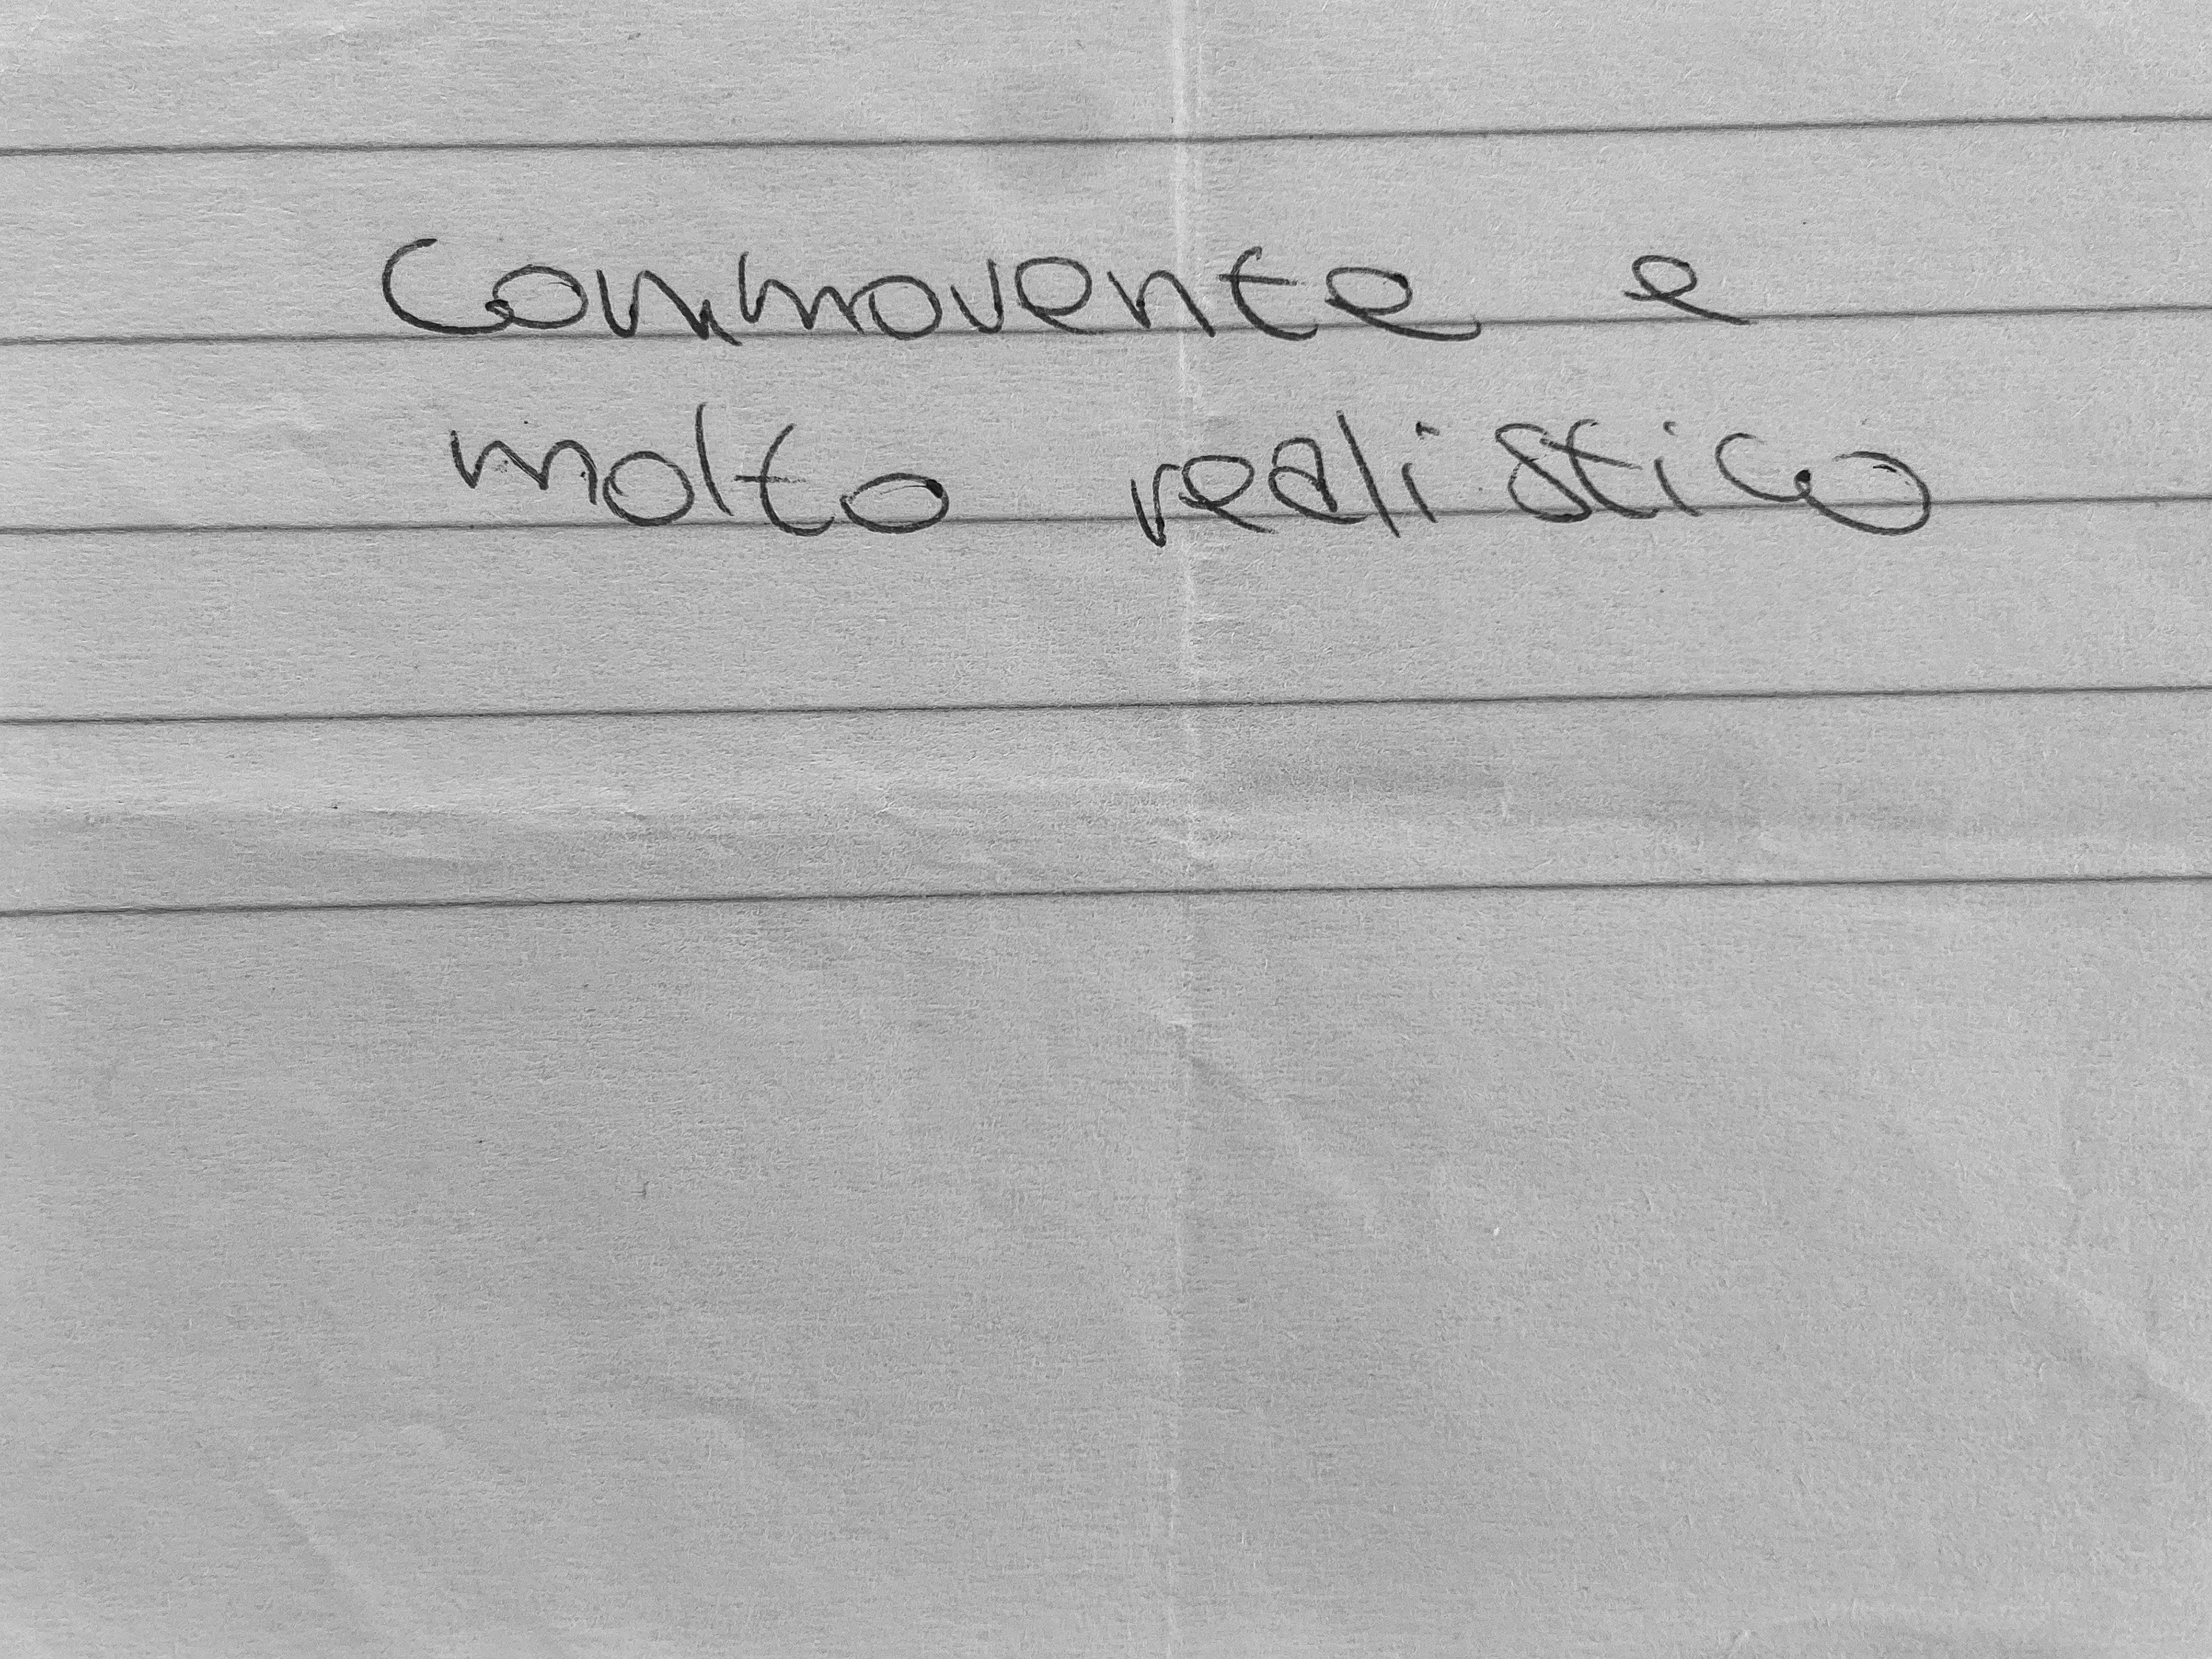 Commovente e
molto realistico